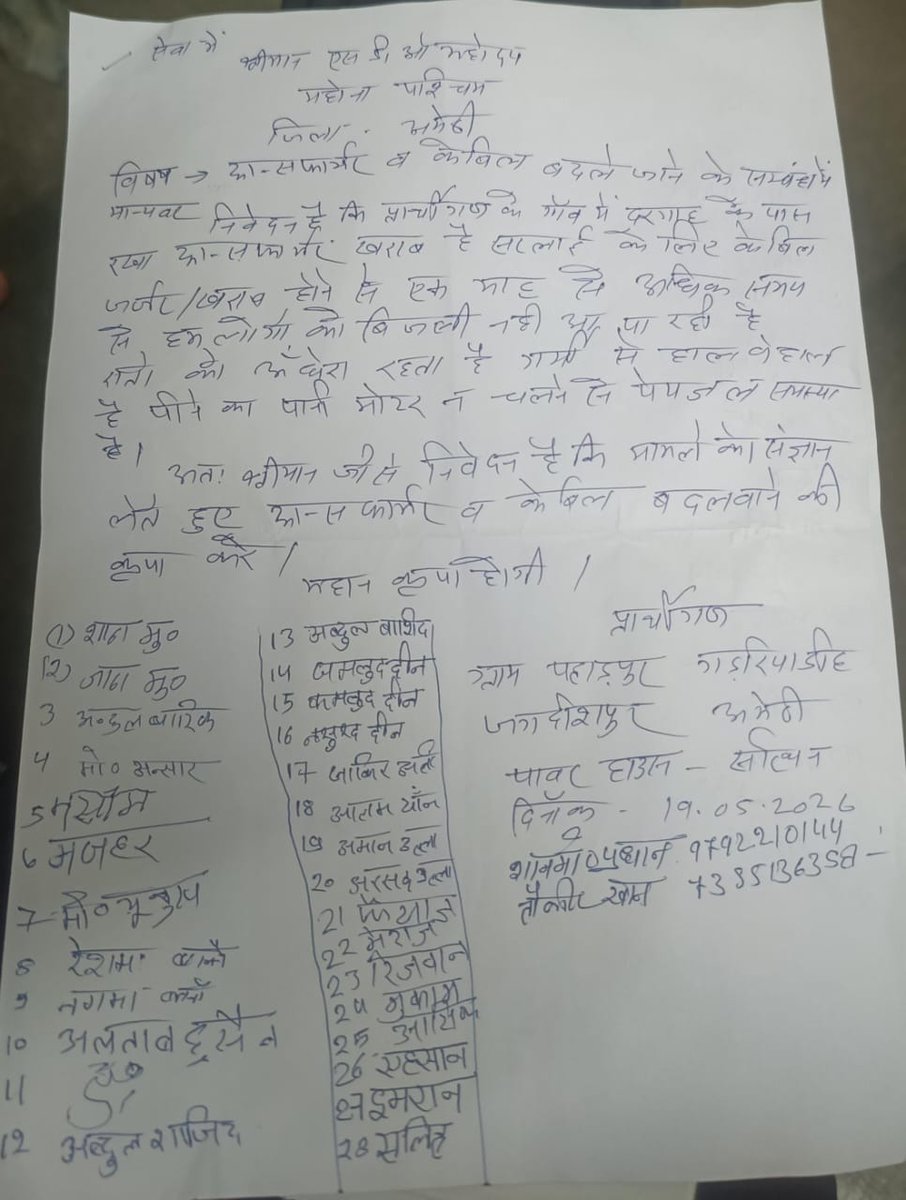 सेवा में
श्रीमान एस डी ओ महोदय
महोना पश्चिम
जिला - अमेठी
विषय → ट्रान्सफार्मर व केबिल बदले जाने के सम्बंध में
मान्यवर
निवेदन है कि प्रार्थीगण के गाँव में दरगाह के पास
रखा ट्रान्सफार्मर खराब है सप्लाई के लिए केबिल
जर्जर/खराब होने से एक माह से अधिक समय
से हम लोगो को बिजली नही आ पा रही है
रातो को अँधेरा रहता है गर्मी से हाल बेहाल
है पीने का पानी मोटर न चलने से पेयजल समस्या
है।
अतः श्रीमान जी से निवेदन है कि मामले का संज्ञान
लेते हुए ट्रान्सफार्मर व केबिल बदलवाने की
कृपा करें।
महान कृपा होगी।
(1) शान मु०
(2) जान मु०
3 अब्दुल बारिक
4 मो० अन्सार
5 नसीम
6 मजहर
7 मो०
8 रेशमा बानो
9 नगमा
10 अलताब हुसैन
11
12 अब्दुल शाजिद
13 अब्दुल बाशिद
14 जमलुद्दीन
15 कमलुद दीन
16 दीन
17 जाकिर अली
18 आलम
19 अमान उल्ला
20 अरसद उल्ला
21 फैयाज
22 मेराज
23 रिजवान
24 मुकीम
25
26 एहसान
27 इमरान
28 सलिह
प्रार्थीगण
ग्राम पहाड़पुर गड़रियाडीह
जगदीशपुर अमेठी
पावर हाउस -
दिनाँक - 19.05.2026
प्रधान 9792210144
तौकीर खान 7385136358